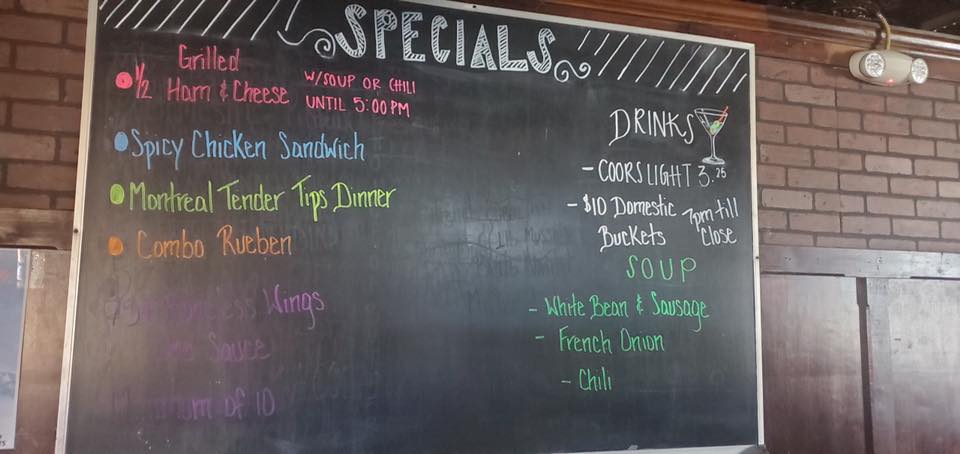 SPECIALS
Grilled
1/2 Ham & Cheese
W/SOUP OR CHILI
UNTIL 5:00 PM
Spicy Chicken Sandwich
Montreal Tender Tips Dinner
Combo Rueben
Wings
Sauce
of 10
DRINKS
- COORS LIGHT 3.25
- $10 Domestic
Buckets
7pm till
Close
SOUP
- White Bean & Sausage
- French Onion
- Chili